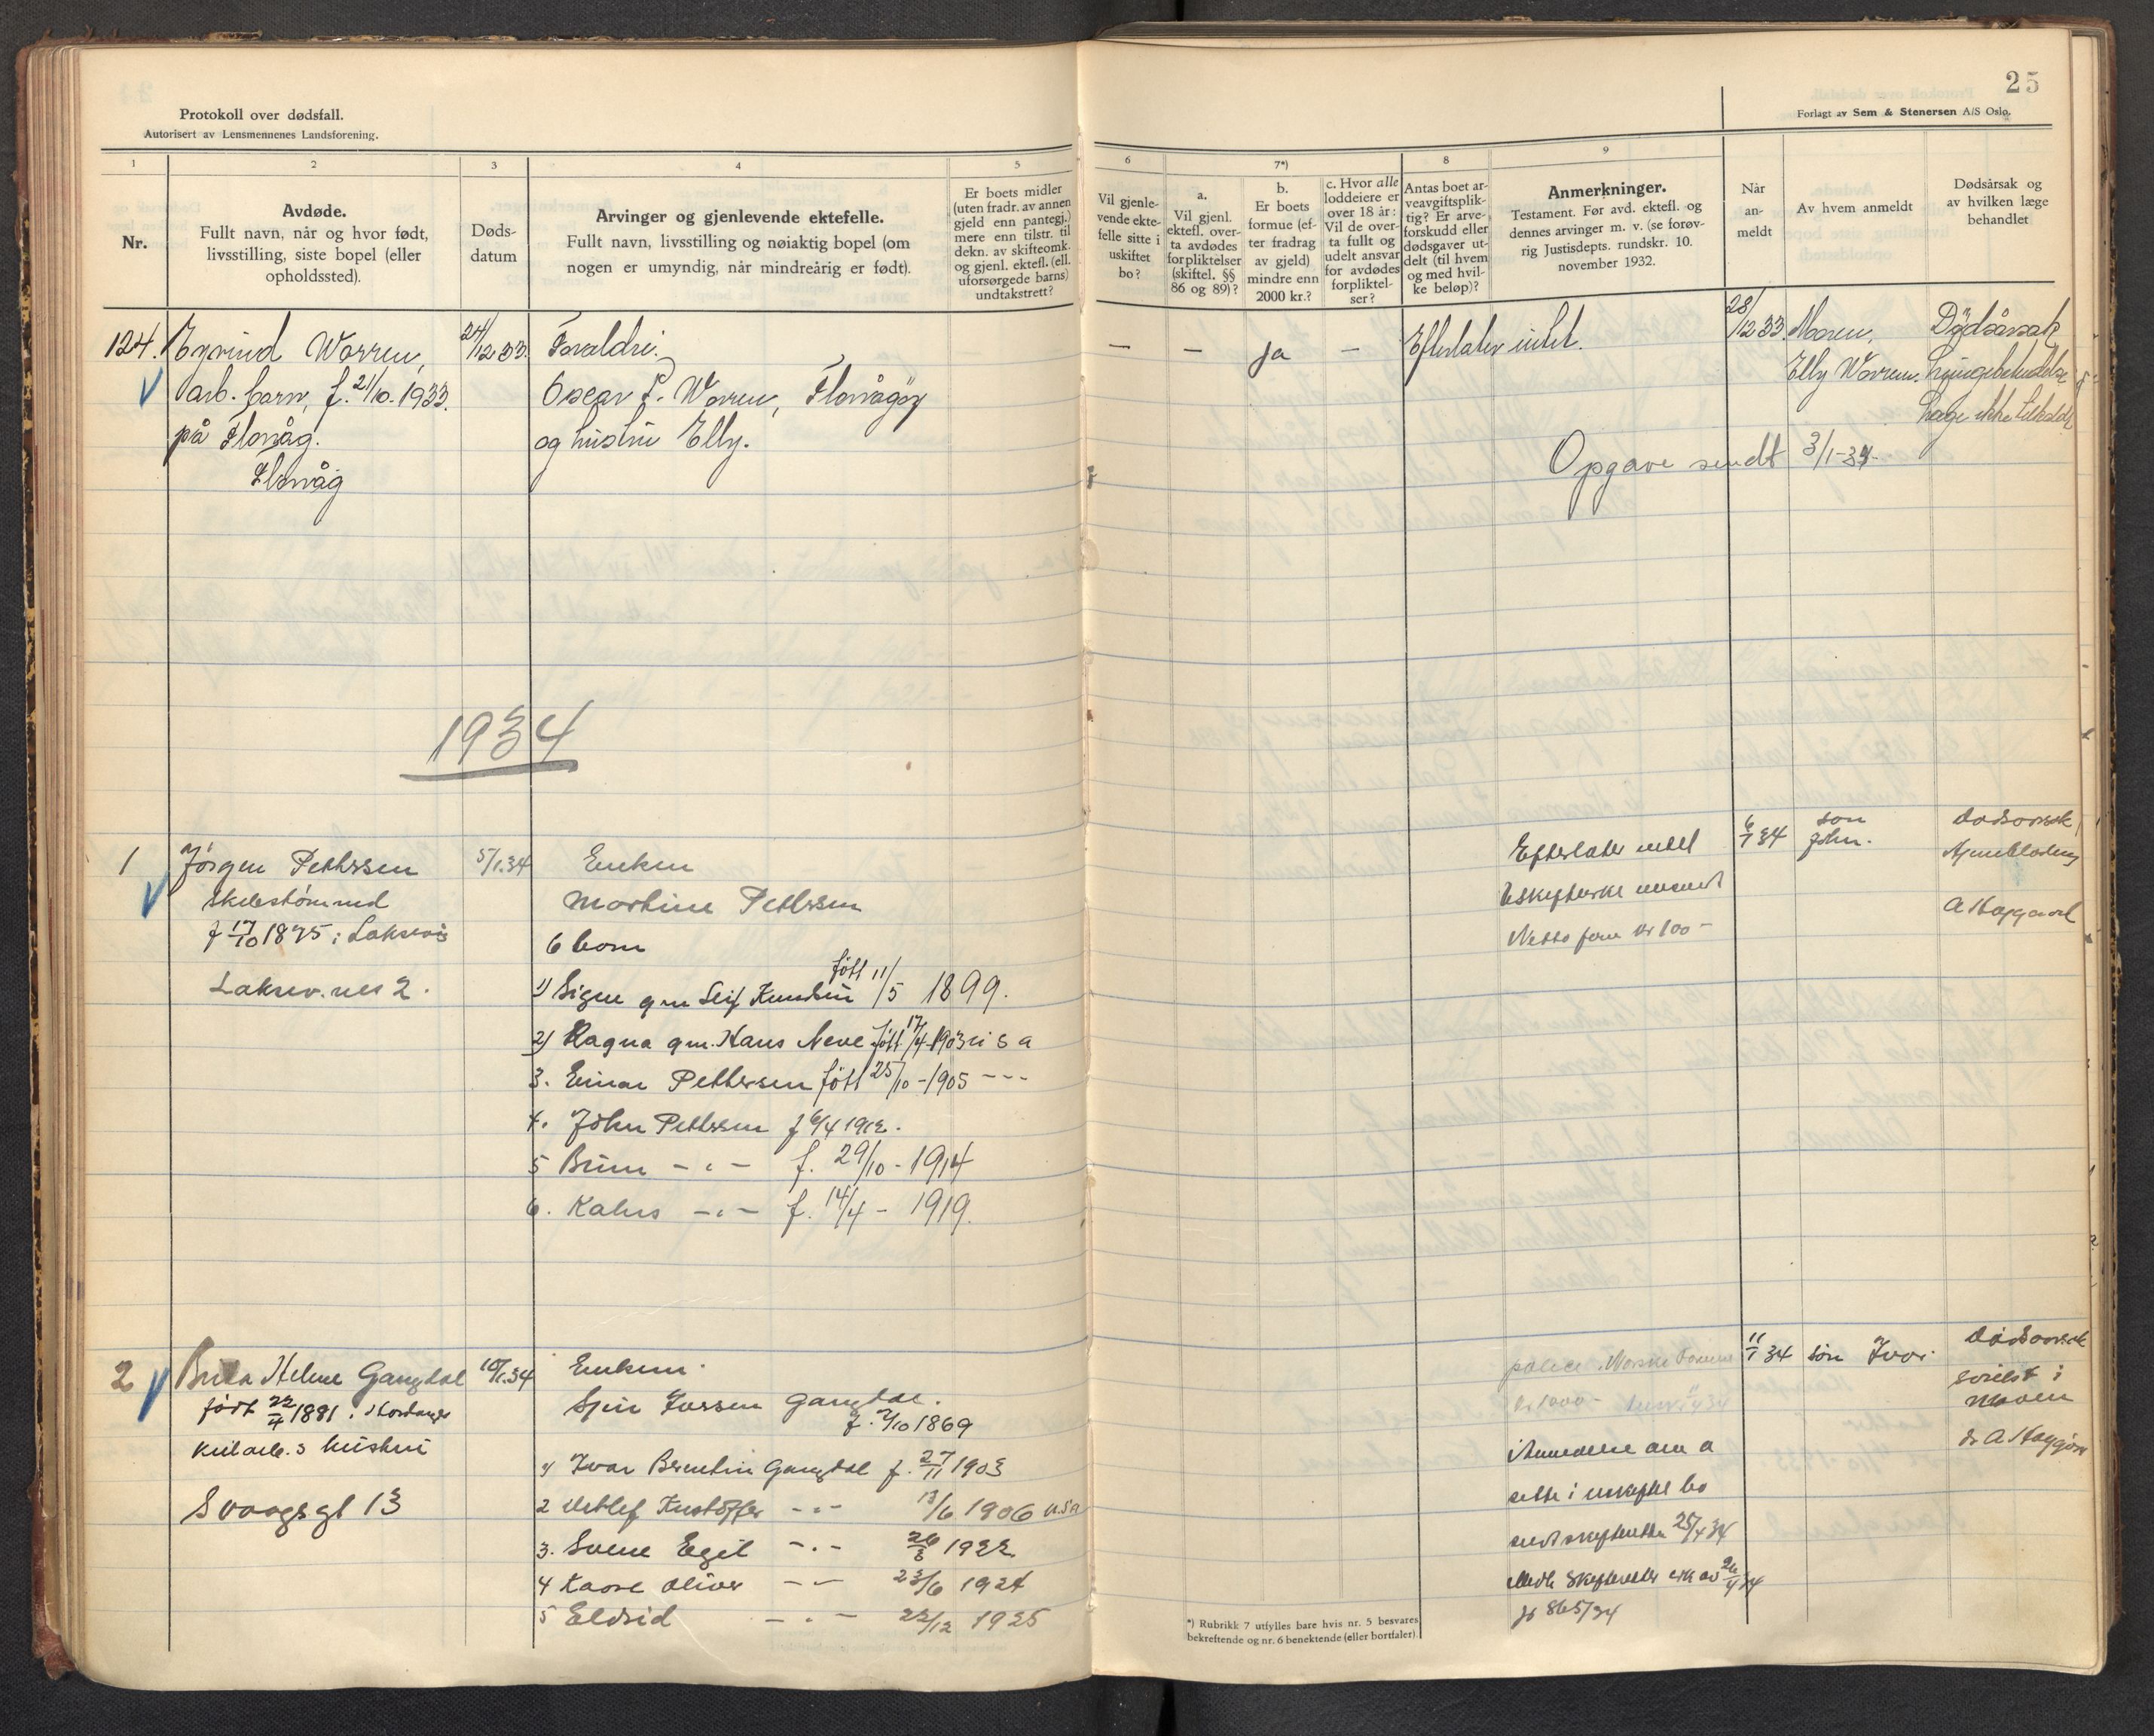 25
Protokoll over dødsfall.
Autorisert av Lensmennenes Landsforening.
Forlagt av Sem & Stenersen A/S Oslo.
1
2
3
4
5
6
7*)
8
9
Nr.
Avdøde.
Fullt navn, når og hvor født,
livsstilling, siste bopel (eller
opholdssted).
Døds-
datum
Arvinger og gjenlevende ektefelle.
Fullt navn, livsstilling og nøiaktig bopel (om
nogen er umyndig, når mindreårig er født).
Er boets midler
(uten fradr. av annen
gjeld enn pantegj.)
mere enn tilstr. til
dekn. av skifteomk.
og gjenl. ektefl. (ell.
uforsørgede barns)
undtakstrett?
Vil gjenle-
vende ekte-
felle sitte i
uskiftet
bo?
a.
Vil gjenl.
ektefl. over-
ta avdødes
forpliktelser
(skiftel. §§
86 og 89)?
b.
Er boets
formue (ef-
ter fradrag
av gjeld)
mindre enn
2000 kr.?
c. Hvor alle
loddeiere er
over 18 år:
Vil de over-
ta fullt og
udelt ansvar
for avdødes
forpliktel-
ser?
Antas boet ar-
veavgiftsplik-
tig? Er arve-
forskudd eller
dødsgaver ut-
delt (til hvem
og med hvil-
ke beløp)?
Anmerkninger.
Testament. Før avd. ektefl. og
dennes arvinger m. v. (se forøv-
rig Justisdepts. rundskr. 10.
november 1932.
Når
an-
meldt
Av hvem anmeldt
Dødsårsak og
av hvilken læge
behandlet
124. Eyvind Warren,
arb. barn, f. 21/10.1933.
på Flornåg.
Flornåg
24/12 33
Foreldre.
Oscar P. Warren, Flornågøy
og hustru Elly.
— — ja —
Efterlater intet.
28/12 33.
Moren,
Elly Warren.
Dødsårsak
Lungebetendelse
Læge ikke tilkaldt
Opgave sendt 3/1-34.
1934
1
Jörgen Pettersen
Skibstømmed
f 17/10 1875 i Laksevåg
Laksev.nes 2.
5/1.34
Enken
Martine Pettersen
6 barn
1) Signe gm Leif Knudsen født 11/5 1899.
2) Ragna gm. Hans Neve født 17/4-1903 u s a
3. Einar Pettersen født 25/10-1905 ---
4. John Pettersen f 6/4 1912.
5 -"- f. 29/10-1914
6. -"- f. 14/4 - 1919.
Efterlater intet
Netto form kr 100-
6/1 34
søn
John.
dødsorsak
A Haggard
2
Brita Helene Gangdal
født 22/4 1881 i Hordanger
kulearb.s hustru
Svaagsgt 13
10/1.34
Enkem.
f. 7/10 1869
1) Ivar Berentin Gangdal f. 27/11 1903
2 Detlef Kristoffer -"- 13/6 1906 usa
3. Sverre Egil -"- 26/8 1922
4 Kaare Oliver -"- 23/6 1924
5 Eldrid -"- 22/12 1925
police. Norske
kr 1000-
sitte i uskiftet bo
sendt skifteretten 25/4 34
jr 865/34
11/1 34
søn Ivar
dødsorsak
svulst i
maven
dr A Haggard
*) Rubrikk 7 utfylles bare hvis nr. 5 besvares
bekreftende og nr. 6 benektende (eller bortfaler).